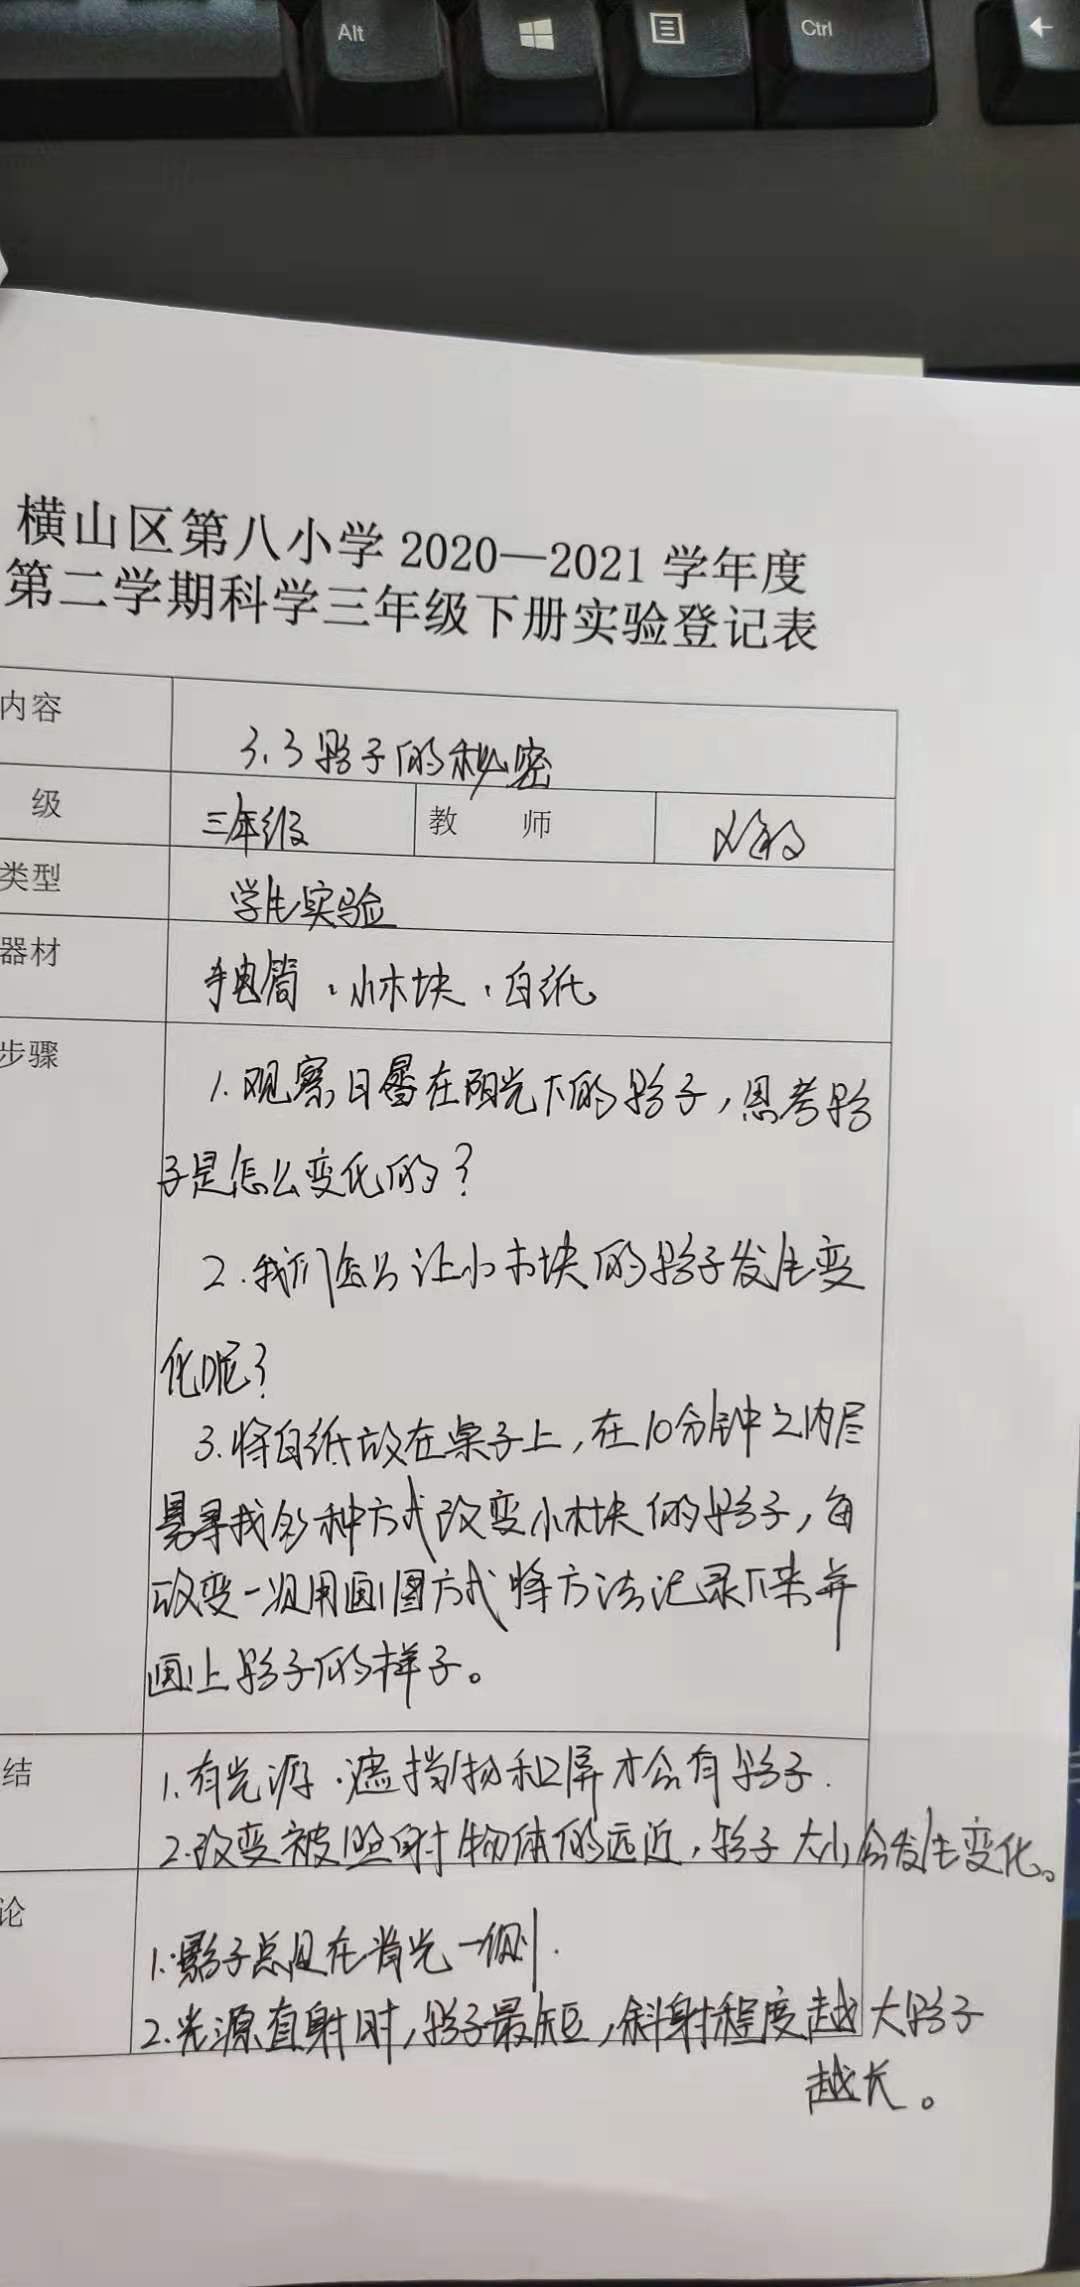 Alt
Ctrl
横山区第八小学 2020—2021 学年度
第二学期科学三年级下册实验登记表
内容 3.3 影子的秘密
级 三年级 教 师
类型 学生实验
器材 手电筒、小木块、白纸。
步骤 1.观察日晷在阳光下的影子,思考影
子是怎么变化的?
2.我们怎么让小木块的影子发生变
化呢?
3.将白纸放在桌子上,在10分钟之内尽
量寻找多种方式改变小木块的影子,每
改变一次用画图方式将方法记录下来并
画上影子的样子。
结 1.有光源、遮挡物和屏才会有影子.
2.改变被照射物体的远近,影子大小会发生变化。
论 1.影子总是在背光一侧.
2.光源直射时,影子最短,斜射程度越大影子
越长。